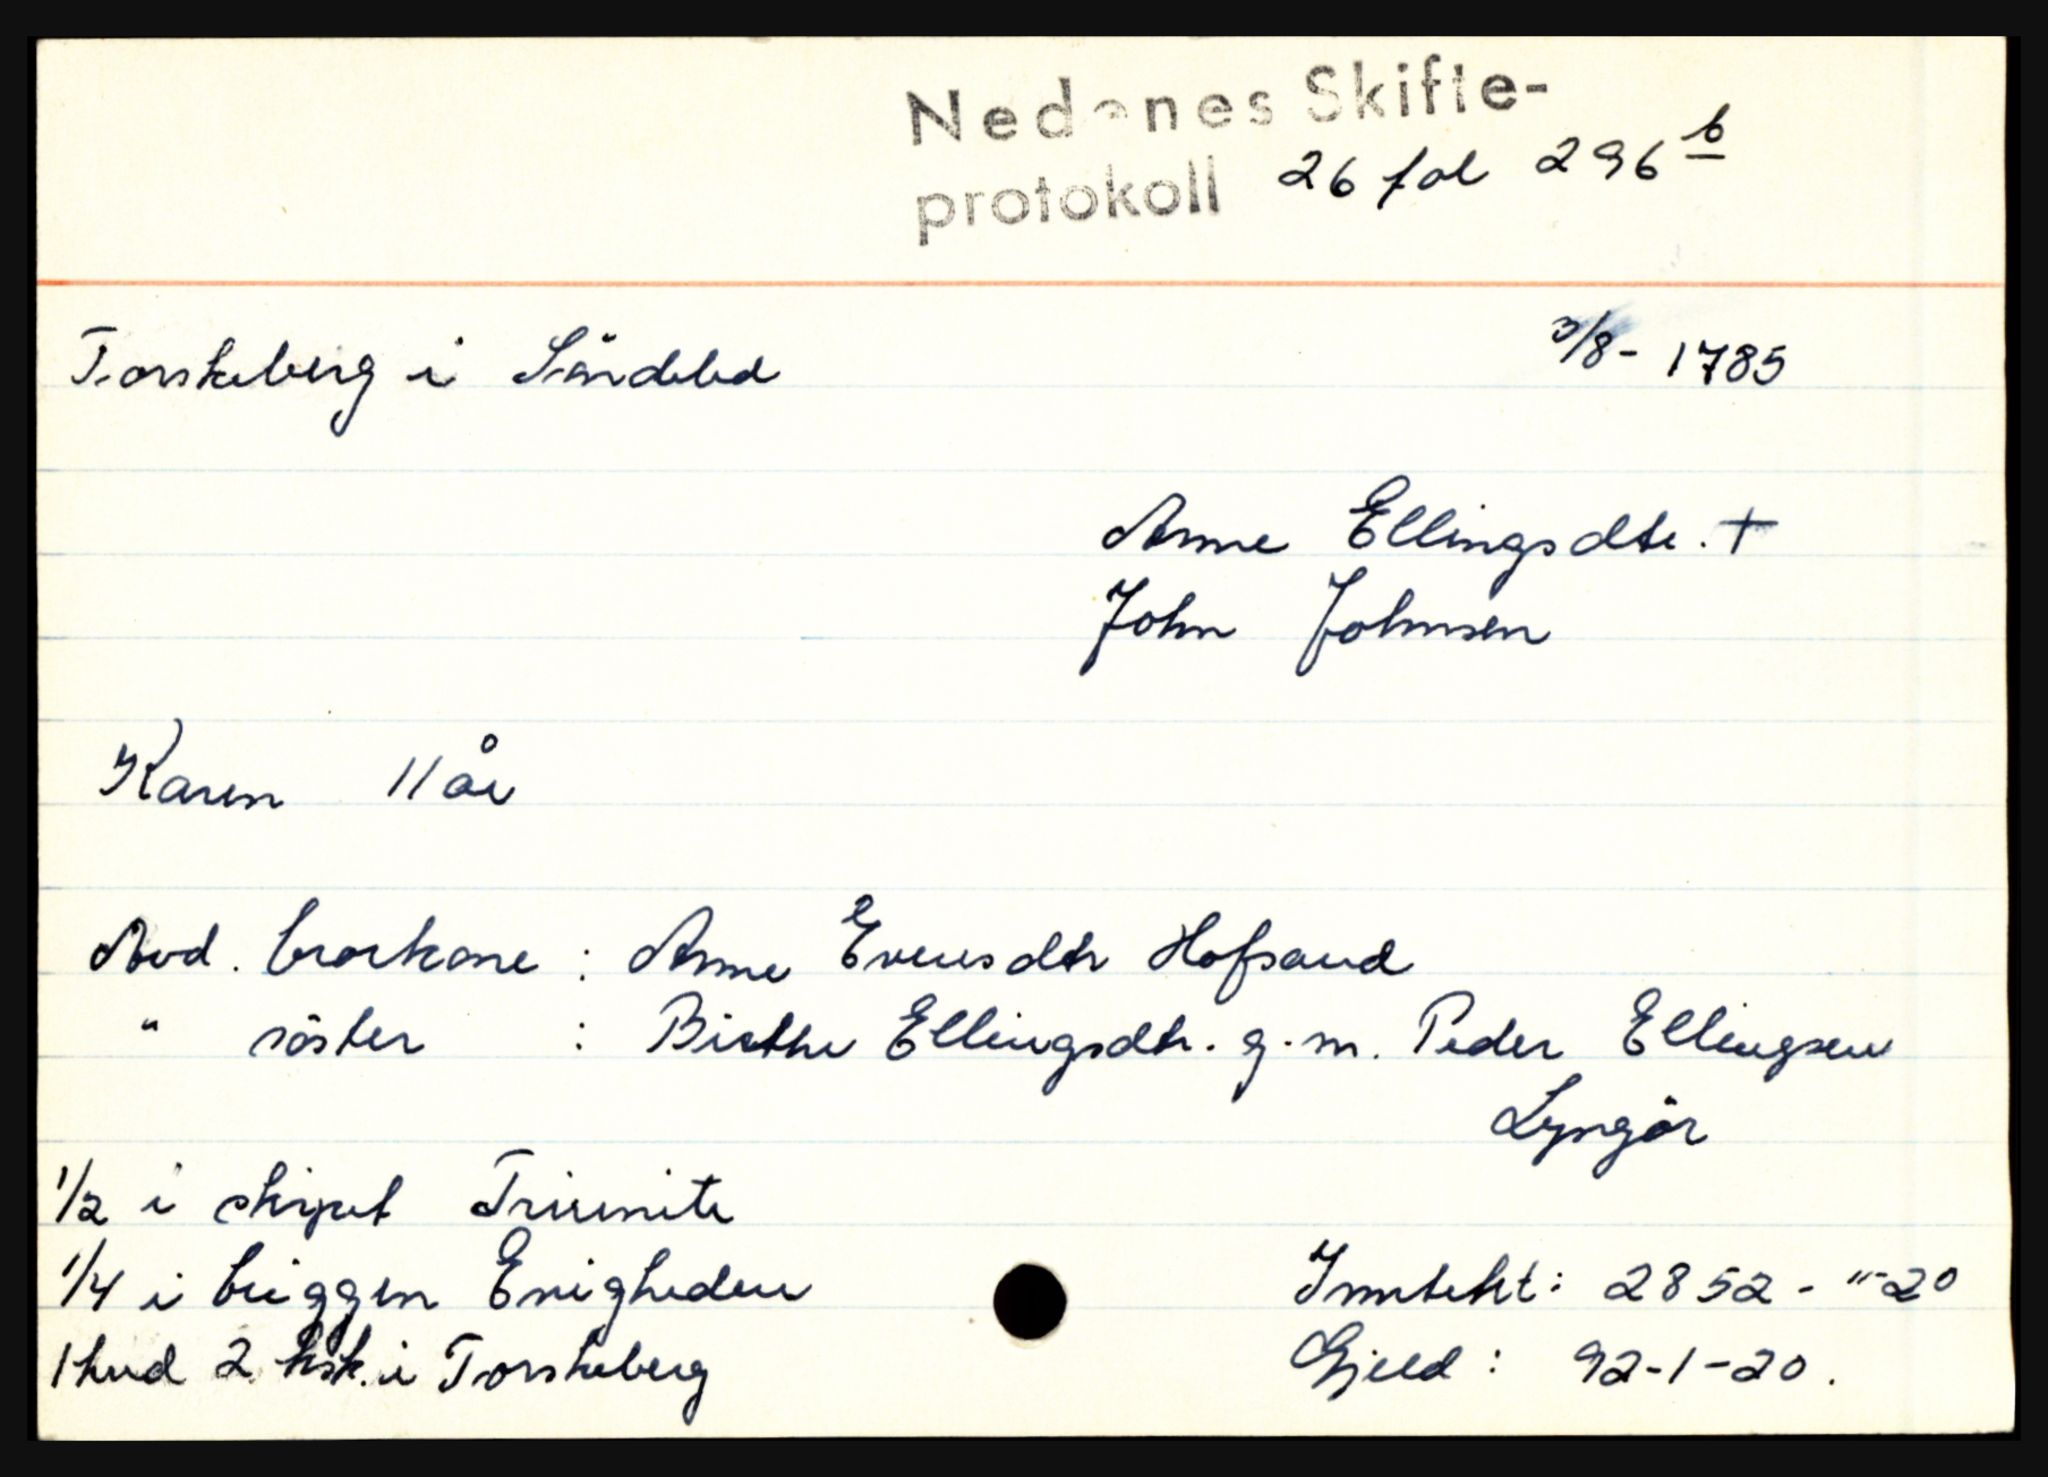 Nedenes Skifte-
protokoll 26 fol 296 b
Torskeberg i Söndeled 3/8 - 1785
Anne Ellingsdtr. +
John Johnsen
Karen 11 år
Avd. brorkone : Anne Evensdtr Hofsand
" söster : Birthe Ellingsdtr. g.m. Peder Ellingsen
Lyngör
1/2 i skipet Triunite
1/4 i briggen Enigheden
Inntekt: 2852 - " - 20
1 hud 2 ksk. i Torskeberg
Gjeld : 92-1-20.